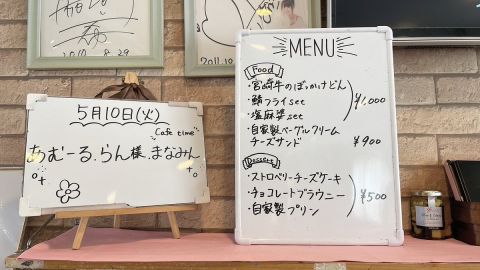 2010. 8. 29
2011.10
5月10日(火)
Cafe time
あむーる.らん様.まなみん
MENU
Food
・宮崎牛のぼっかけどん
・鯖フライset
・塩麻婆set
¥1,000
・自家製ベーグルクリーム
チーズサンド ¥900
Dessert
・ストロベリーチーズケーキ
・チョコレートブラウニー
・自家製プリン
¥500